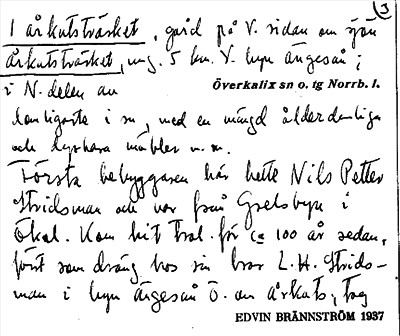 3
1 Årkatsträsket, gård på V. sidan om sjön
Årkatsträsket, ung. 5 km. V. byn Ängeså i
i N. delen av Överkalix sn o. tg Norrb. l.
i sn, med en mängd ålderdomliga
och dyrbara möbler m.m.
Första bebyggaren här hette Nils Petter
Stridsman och var från Grelsbyn i
Ökal. Kom hit trol. för ca 100 år sedan,
först som dräng hos sin bror L. H. Strids-
man i byn Ängeså Ö. om Årkats, tog
EDVIN BRÄNNSTRÖM 1937